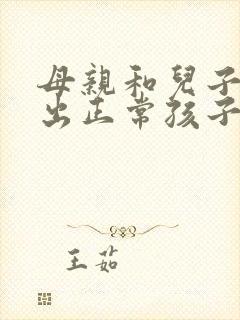 母親和兒子
出正常孩子
王茹